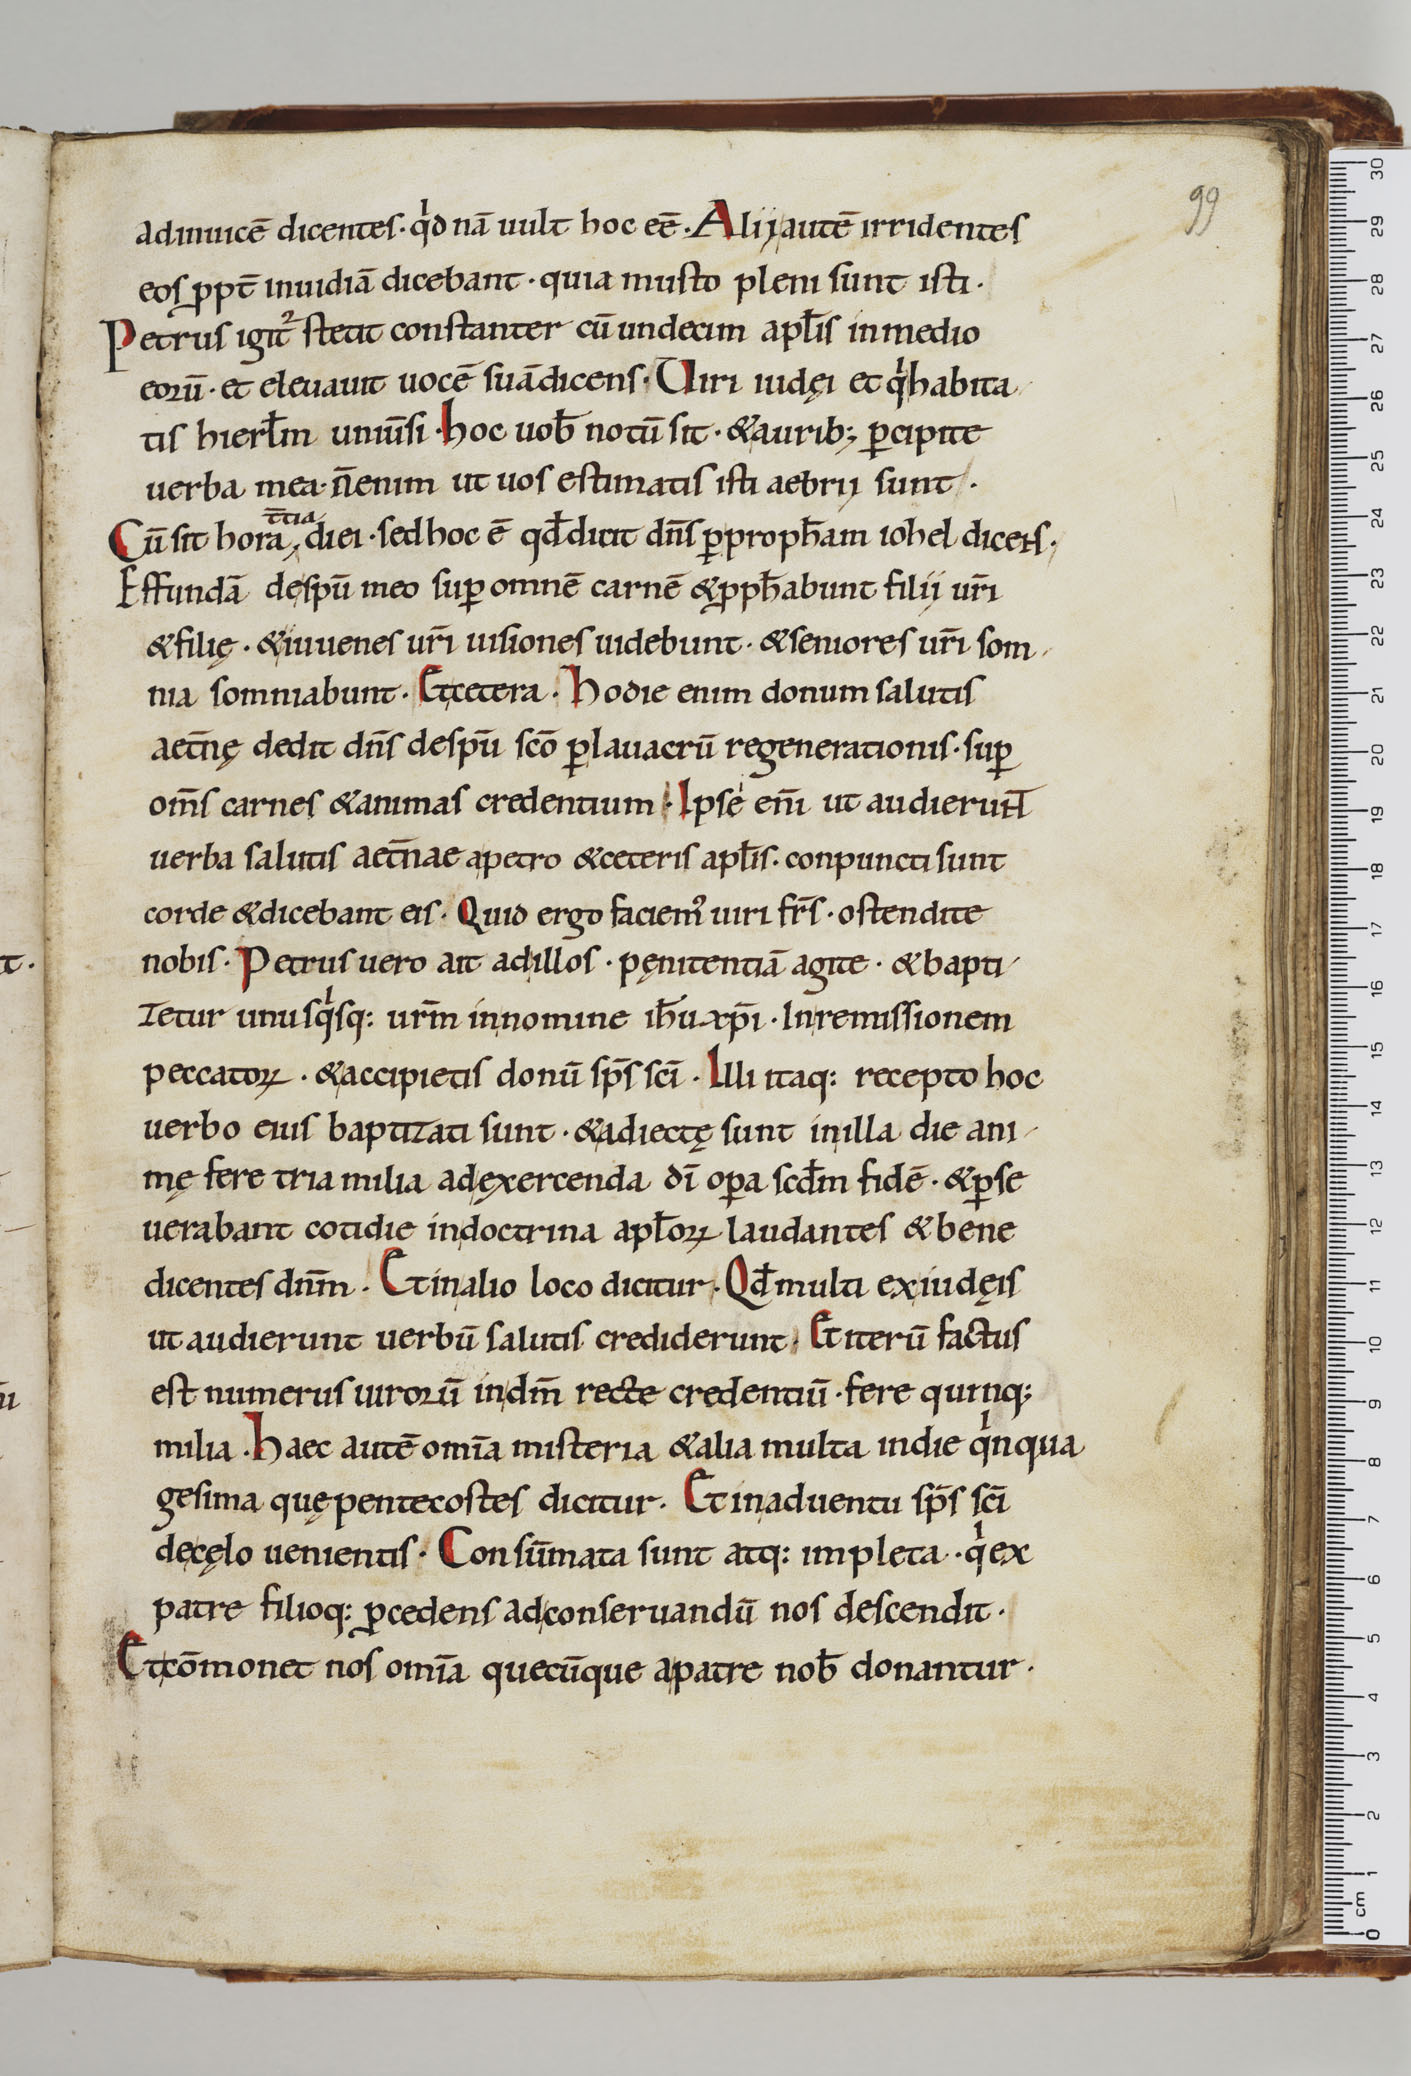 99
adinuicē dicentes · qͥd nā uult hoc eē · Alij autē irridentes
eos ꝓpt̄ inuidiā dicebant · quia musto pleni sunt isti ·
Petrus igit᷑ stetit constanter cū undecim apl̄is in medio
eorū · et eleuauit uocē suā dicens · Uiri iudęi et qͥ habita
tis hierl̄m uniūsi · hoc uob̄ notū sit · & aurib; ꝑcipite
uerba mea · n̄ enim ut uos estimatis isti aebrij sunt ·
Cū sit hora t̄tia diei · sed hoc ē qd̄ dicit dn̄s ꝑ proph̄am iohel dicens ·
Effundā de spū meo suꝑ omnē carnē & ꝓph̄abunt filij ur̄i
& filię · & iuuenes ur̄i uisiones uidebunt · & seniores ur̄i som
nia somniabunt · Et cetera · Hodie enim donum salutis
aet̄nę dedit dn̄s de spū sc̄o ꝑ lauacrū regenerationis · suꝑ
om̄s carnes & animas credentium · Ipsé eni᷑ ut audierunt
uerba salutis aet̄nae a petro & ceteris apl̄is · conpuncti sunt
corde & dicebant eis · Quid ergo faciemꝰ uiri fr̄s · ostendite
nobis · Petrus uero ait ad illos · pęnitentiā agite · & bapti
zetur unusqͥsq: ur̄m in nomine ih̄u xp̄i · In remissionem
peccatoꝝ · & accipietis donū sp̄s sc̄i · Illi itaq: recepto hoc
uerbo eius baptizati sunt · & adiectę sunt in illa die ani
mę fere tria milia ad exercenda dī oꝑa scd̄m fidē · & ꝑse
uerabant cotidie in doctrina apl̄oꝝ laudantes & bene
dicentes dn̄m · Et in alio loco dicitur · Qd̄ multi ex iudęis
ut audierunt uerbū salutis crediderunt · Et iterū factus
est numerus uirorū in dn̄m recte credentiū · fere quinq;
milia · Haec autē omīa misteria & alia multa in die qͥnqua
gesima quę pentecostes dicitur · Et in aduentu sp̄s sc̄i
de cęlo uenientis · Consūmata sunt atq: impleta · qͥ ex
patre filioq: ꝓcedens ad conseruandū nos descendit ·
Et cōmonet nos omīa quecūque a patre nob̄ donantur ·